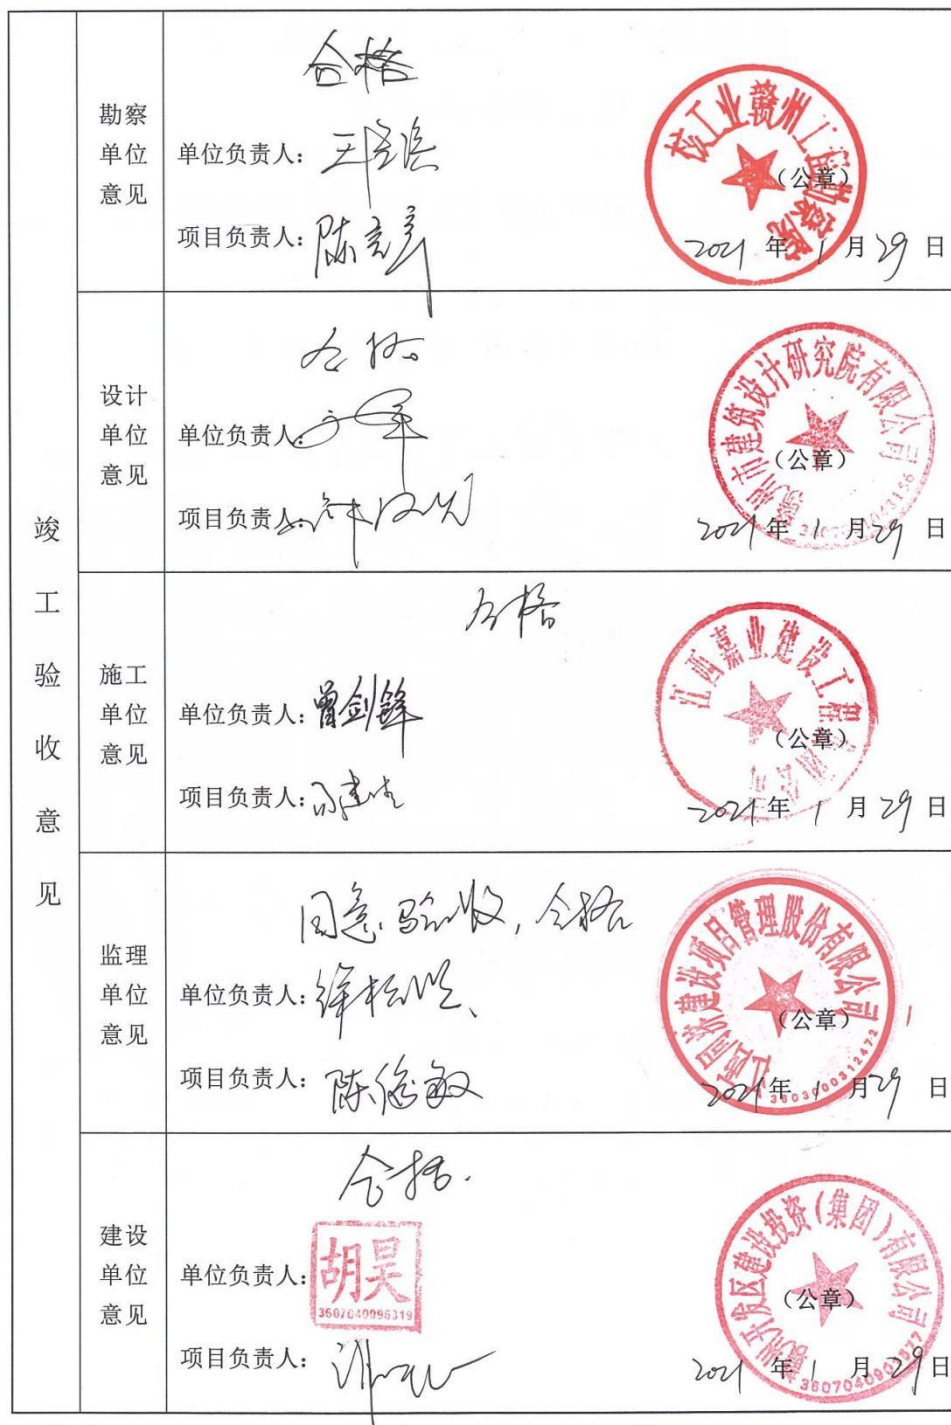 竣工验收意见
勘察单位意见
合格
单位负责人：
项目负责人：陈
核工业赣州工程勘察院
（公章）
2021年1月29日
设计单位意见
合格
单位负责人
项目负责人
赣州市建筑设计研究院有限公司
（公章）
2021年1月29日
施工单位意见
合格
单位负责人：曾剑锋
项目负责人：
江西嘉业建设工程有限公司
（公章）
2021年1月29日
监理单位意见
同意验收，合格
单位负责人：
项目负责人：陈
建设项目管理股份有限公司
3603000312472
（公章）
2021年1月29日
建设单位意见
合格.
单位负责人：
胡昊
3607040096319
项目负责人：
赣州开发区建设投资（集团）有限公司
（公章）
2021年1月29日